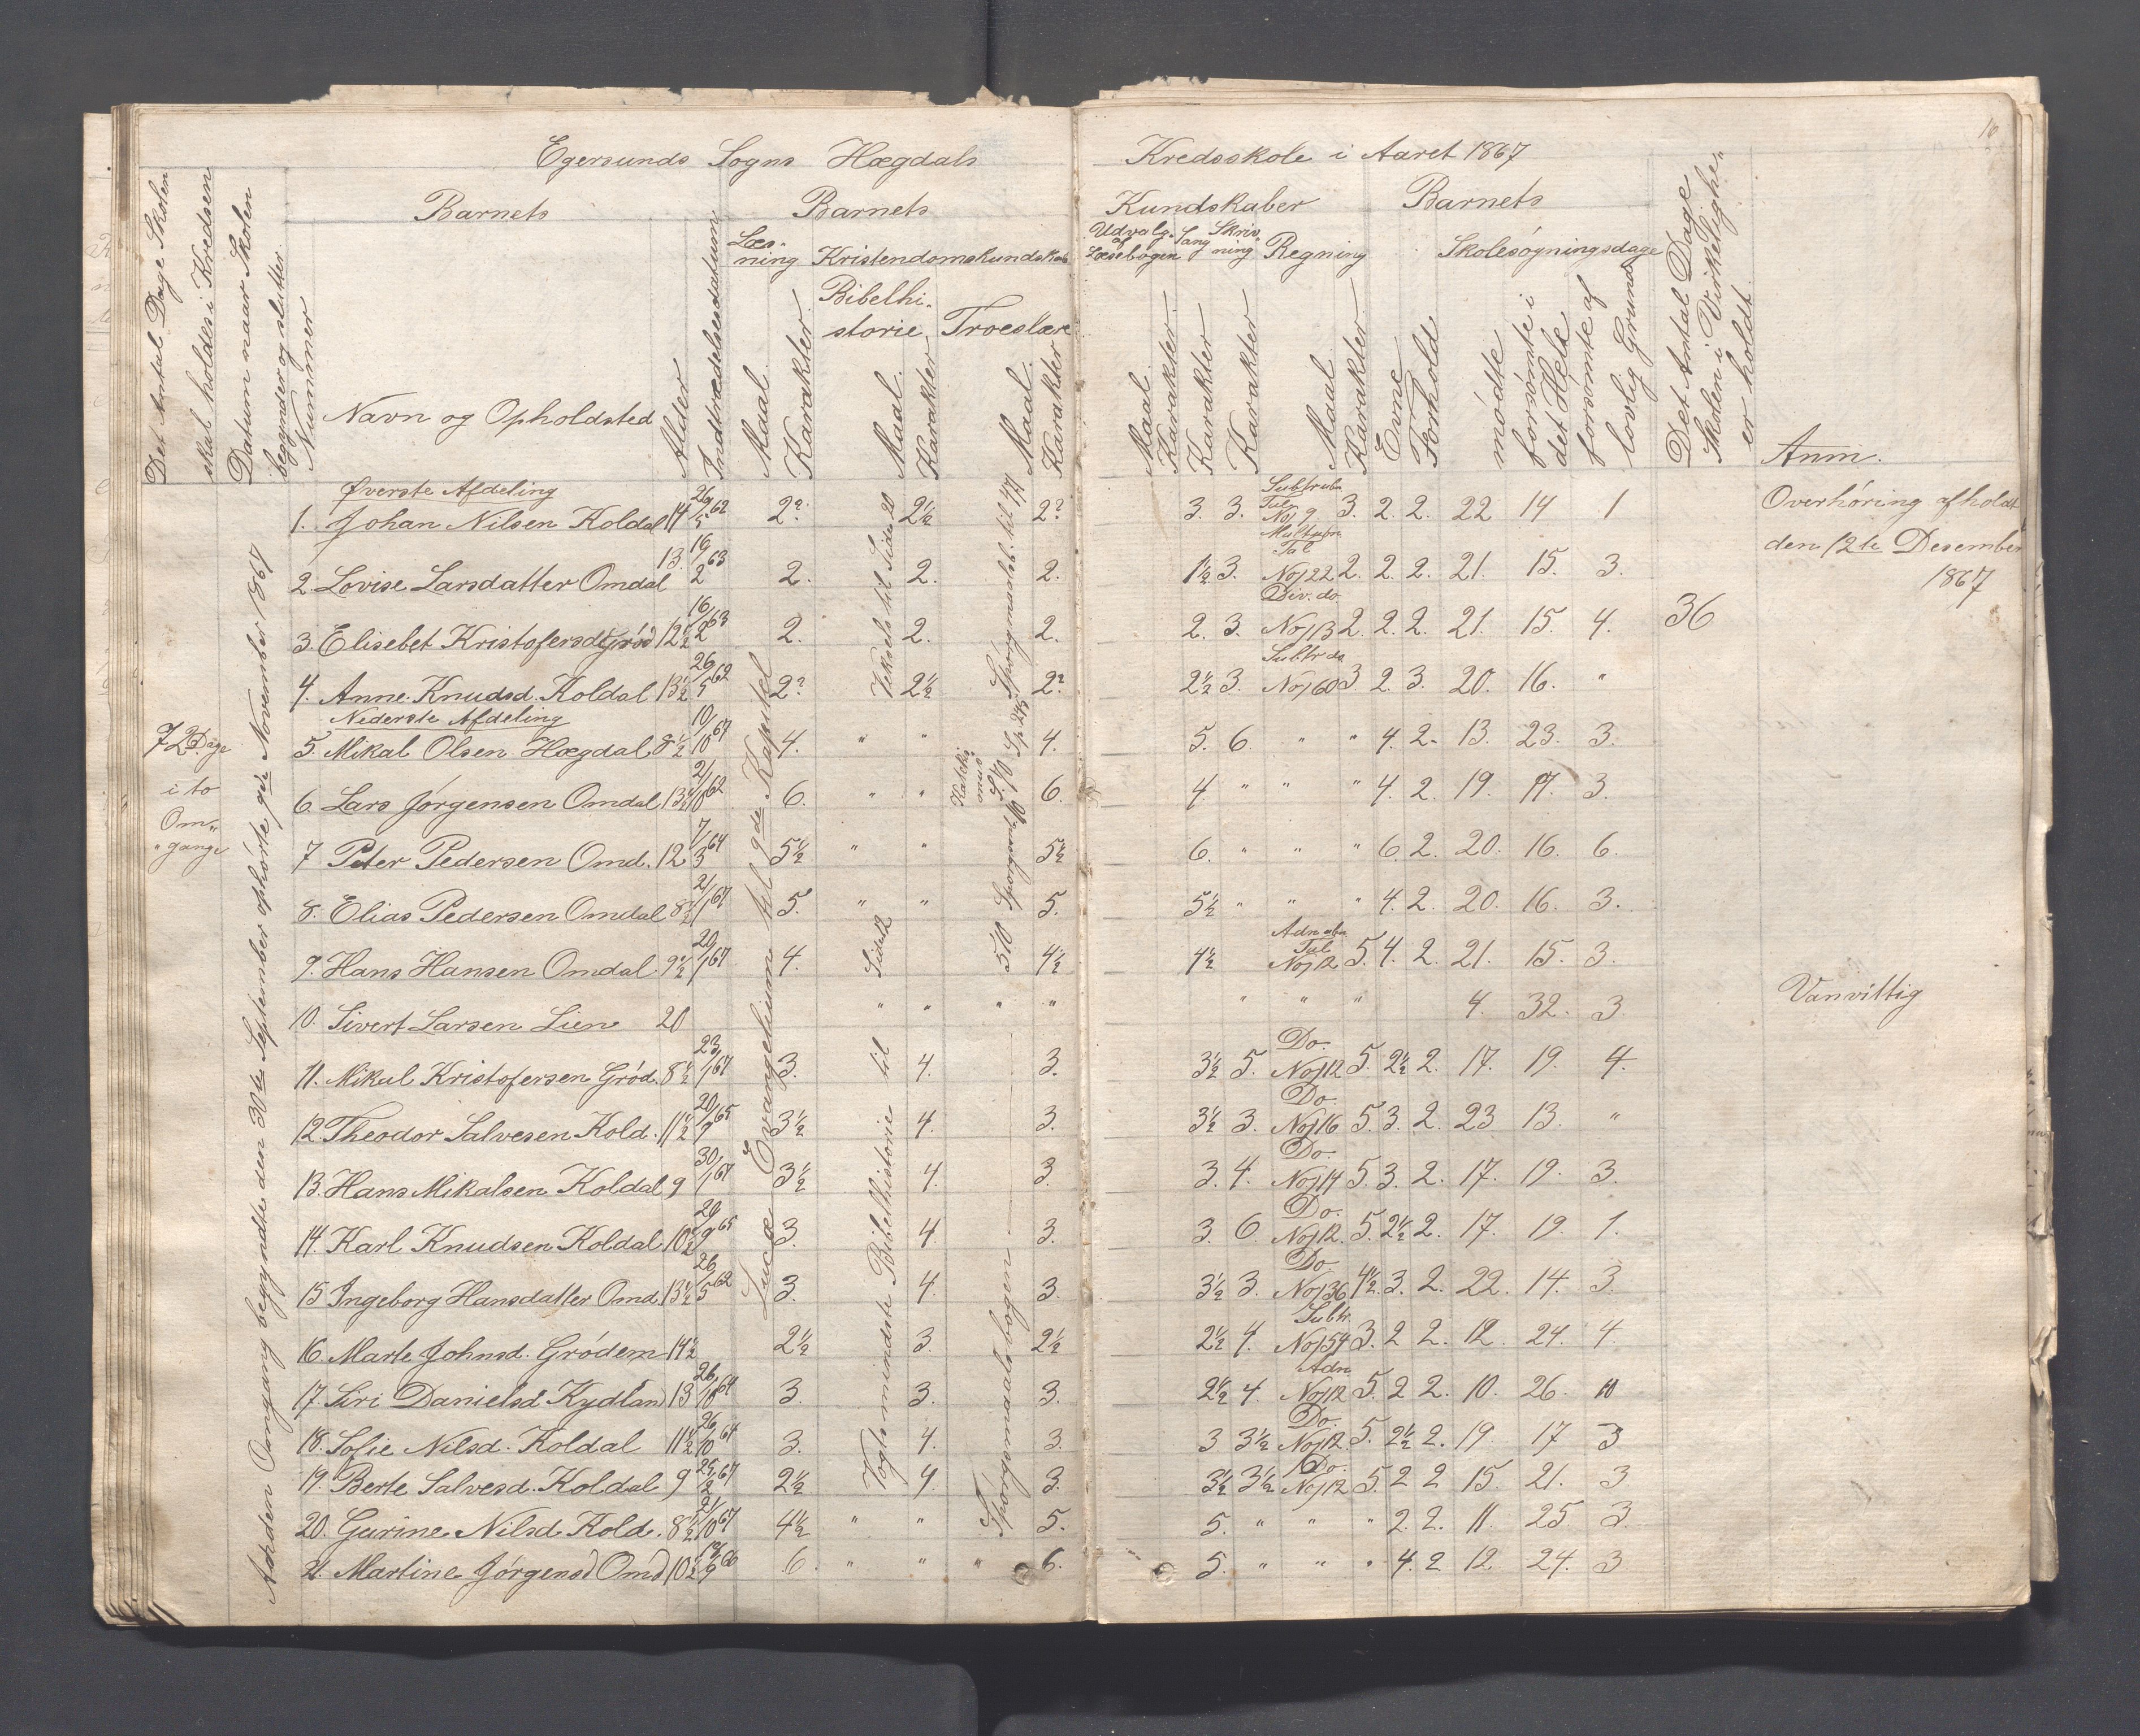 Egersunds Sogns Hægdals Kredsskole i Aaret 1867
10
Det Antal Dage Skolen
skal holdes i Kredsen
Datum naar Skolen
begynder og slutter
Nummer
Barnets
Navn og Opholdsted
Alder
Indtrædelsesdatum
Barnets
Kundskaber
Læs-
ning
Kristendomskundskab
Bibelhi-
storie
Troeslære
Maal
Karakter
Maal
Karakter
Maal
Karakter
Udvalg
af
Læsebogen
Sang
Skriv
ning
Regning
Maal
Karakter
Karakter
Karakter
Maal
Karakter
Barnets
Skolesøgningsdage
Evne
Forhold
mødte
forsømte i
det Hele
forsømte af
lovlig Grund
Det Antal Dage
Skolen i Virkelighe-
er holdt
Anm.
72 Dage
i to
Om"
"gange
Anden Omgang begyndte den 30te September ophørte 9de November 1867
Lucæ Evangelium til 9de Kapitel
Veksels til Side 20
Vogts mindste Bibelhistorie til Side 12
Katekis
mus
Spørgsmaalsbogen
Øverste Afdeling
1. Johan Nilsen Koldal 14 26/5 62 2? 2½ 2? 3. 3. Subtr. Tal No 9 3. 2. 2. 22 14 1 Overhøring afholdt
den 12te Desember
1867
2. Lovise Larsdatter Omdal 13. 16/2 63 2. 2. 2. 1½ 3. Tal No 22 2. 2. 2. 21. 15. 3.
3. Elisebet Kristofersd Grød 12½ 16/2 63 2. 2. 2. 2. 3. Div. do No 13 2. 2. 2. 21. 15. 4. 36
4. Anne Knudsd. Koldal 13½ 26/5 62 2? 2½ 2? 2½ 3. Subtr do No 60 3 2. 3. 20. 16. "
Nederste Afdeling
5. Mikal Olsen Hægdal 8½ 10/10 67 4. " " 4. 5. 6. " " 4. 2. 13. 23. 3.
6. Lars Jørgensen Omdal 13½ 21/10 62 6. " " 6. 4. " " " 4. 2. 19. 17. 3.
7 Peter Pedersen Omd. 12 7/3 64 5½ " " 5½ 6. " " " 6. 2. 20. 16. 6.
8. Elias Pedersen Omdal 8½ 21/1 67 5. " " 5. 5½ " " " 4. 2. 20. 16. 3.
9. Hans Hansen Omdal. 9½ 20/1 67 4. 4½ 4½ Tal No 12 5. 4. 2. 21. 15. 3.
10. Sivert Larsen Lien 20 " " " " " " " 4. 32. 3. Vanvittig
11. Mikal Kristofersen Grød. 8½ 23/1 67 3. 4. 3. 3½ 5. Do. No 12 5. 2½ 2. 17. 19. 4.
12. Theodor Salvesen Kold. 11½ 20/9 65 3½ 4. 3. 3½ 3. Do No 16 5. 3. 2. 23 13. "
13. Hans Mikalsen Koldal 9 30/1 67 3½ 4. 3. 3. 4. Do. No 14 5. 3. 2. 17. 19. 3.
14. Karl Knudsen Koldal 10½ 20/9 65 3. 4. 3. 3. 6. Do. No 12. 5. 2½ 2. 17. 19. 1.
15 Ingeborg Hansdatter Omd. 13½ 26/5 62 3. 4. 3. 3½ 3. Do No 36 4½. 3. 2. 22. 14. 3.
16. Marte Johnsd. Grødem 14½ 2½ 3. 2½ 2½ 4. Subtr. No 54 3. 2 2. 12. 24. 4.
17. Siri Danielsd Kydland 13 26/10 64 3. 3. 3. 2½ 4. Adn No 12 5. 2 2. 10. 26. 10
18. Sofie Nilsd. Koldal 11½ 26/10 64 3. 4. 3. 3. 3½ Do. No 12. 5. 2½ 2. 19. 17 3
19. Berte Salvesd. Koldal 9 25/2 67 2½ 4. 3. 3½ 3½ Do. No 12 5. 2 2 15. 21. 3
20. Gurine Nilsd. Kold. 8½ 21/10 67 4½ " " 5. 5. " " " 2. 2. 11. 25. 3.
21. Martine Jørgensd Omd 10½ 6. " " " 6. 5. " " " 4. 2 12. 24. 3